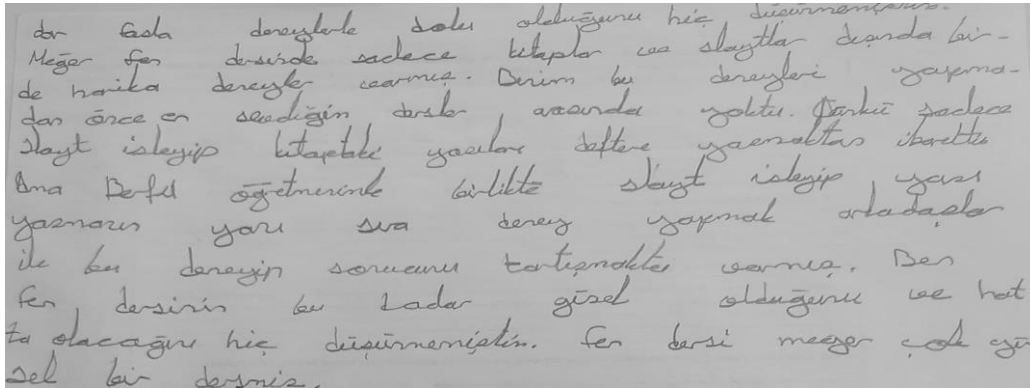 dar fazla deneylerle dolu olduğunu hiç düşünmemiştim.
Meğer fen dersinde sadece kitaplar ve slaytlar dışında bir-
de harika deneyler varmış. Benim bu deneyleri yapma-
dan önce en sevdiğim dersler arasında yoktu. Çünkü sadece
slayt izleyip kitaptaki yazıları deftere yazmaktan ibaretti
Ama öğretmenimle birlikte slayt izleyip yazı
yazmanın yanı sıra deney yapmak arkadaşlar
ile bu deneyin sonucunu tartışmakta varmış. Ben
fen dersinin bu kadar güzel olduğunu ve hat
ta olacağını hiç düşünmemiştim. fen dersi meğer çok gü
zel bir dersmiş.